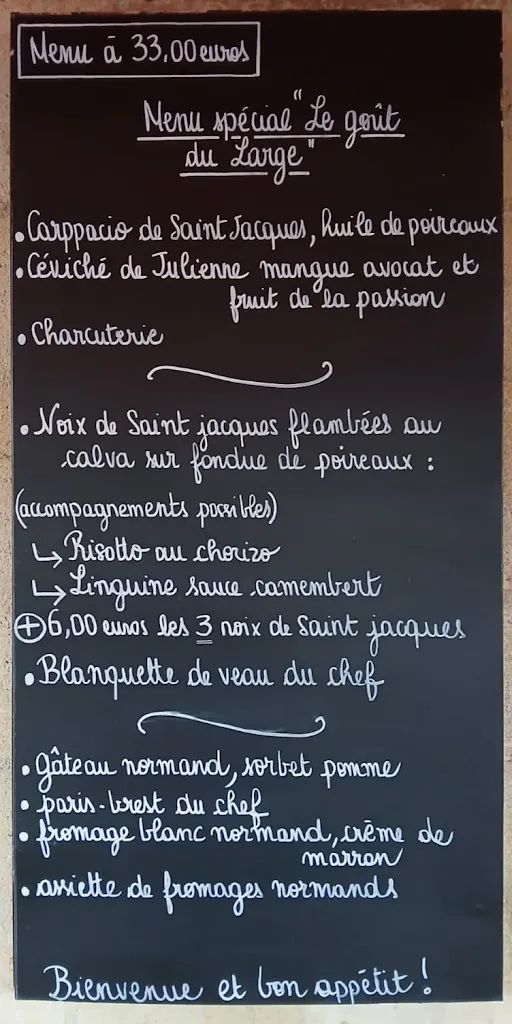 Menu à 33,00 euros
Menu spécial "Le goût
du Large"
• Carppacio de Saint Jacques, huile de poireaux
• Céviché de Julienne mangue avocat et
fruit de la passion
• Charcuterie
• Noix de Saint jacques flambées au
calva sur fondue de poireaux :
(accompagnements possibles)
↳ Risotto au chorizo
↳ Linguine sauce camembert
⊕ 6,00 euros les 3 noix de Saint jacques
• Blanquette de veau du chef
• gâteau normand, sorbet pomme
• paris-brest du chef
• fromage blanc normand, crème de
marron
• assiette de fromages normands
Bienvenue et bon appétit !